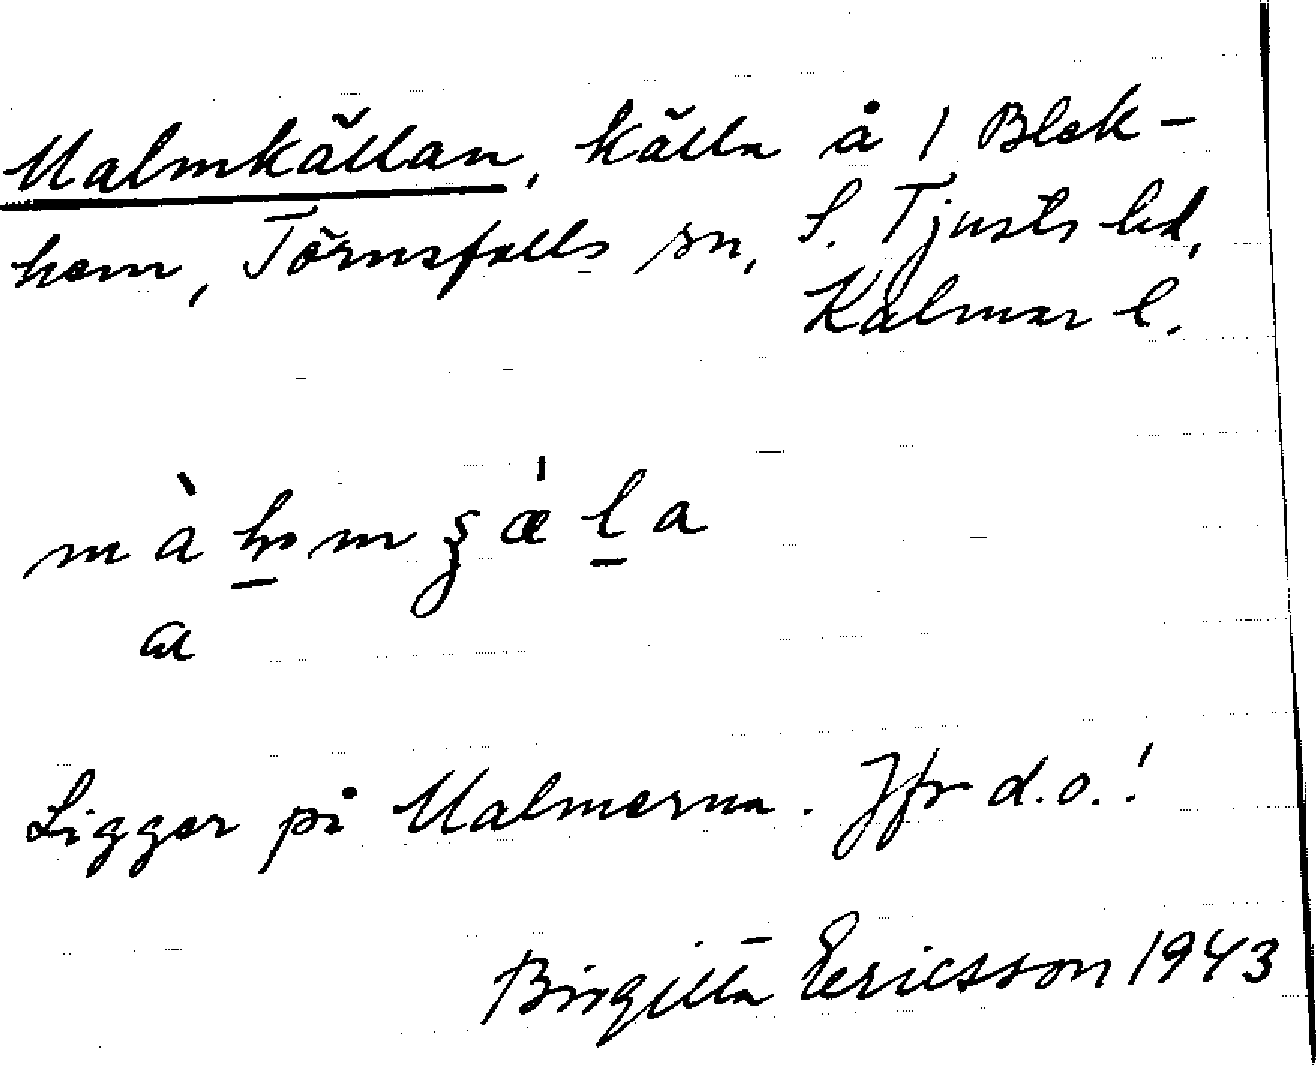 Malmkällan, källa å 1 Blek-
hem, Törnsfalls sn, S. Tjusts hd,
Kalmar l.
Ligger på Malmerna. Jfr d.o.!
Birgitta Ericsson 1943